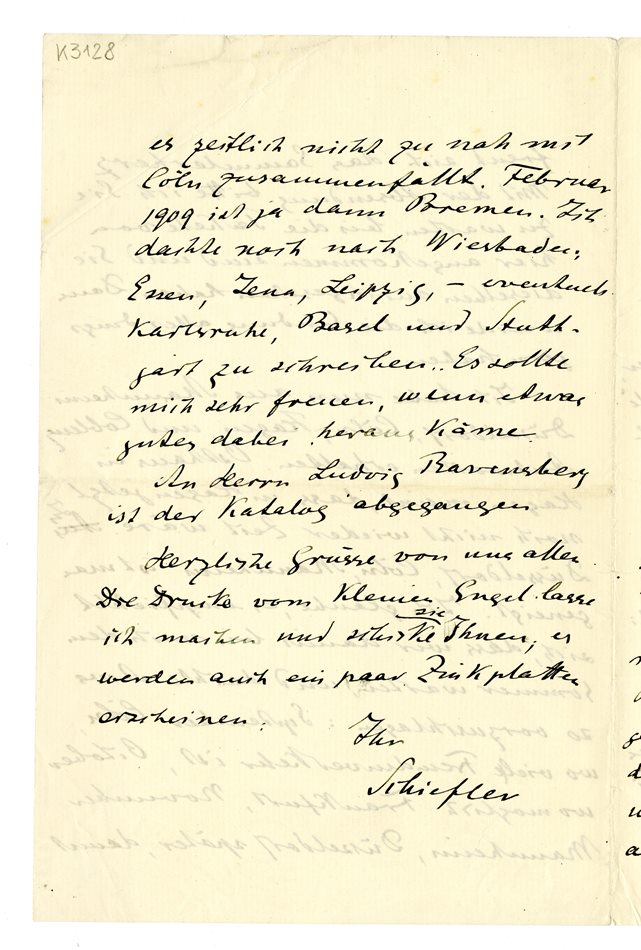 K3128
es zeitlich nicht zu nah mit
Cöln zusammenfällt. Februar
1909 ist ja dann Bremen. Ich
dachte noch nach Wiesbaden,
Essen, Jena, Leipzig, – eventuell
Karlsruhe, Basel und Stutt-
gart zu schreiben. Es sollte
mich sehr freuen, wenn etwas
gutes dabei heraus käme.
An Herrn Ludwig Ravensberg
ist der Katalog abgegangen
Herzliche Grüsse von uns allen.
Die Drucke vom kleinen Engel lasse
ich machen und schicke sie Ihnen, es
werden auch ein paar Zinkplatten
erscheinen.
Ihr
Schiefler